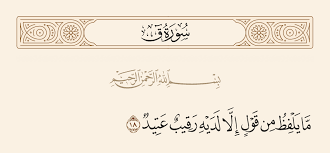 سُورَةُ ق
بِسْمِ اللَّهِ الرَّحْمَٰنِ الرَّحِيمِ
مَّا يَلْفِظُ مِن قَوْلٍ إِلَّا لَدَيْهِ رَقِيبٌ عَتِيدٌ ١٨